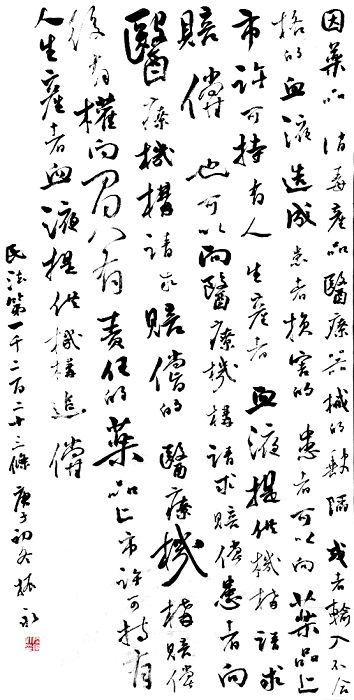 因藥品消毒產品醫療器械的缺陷或者輸入不合
格的血液造成患者損害的患者可以向藥品上
市許可持有人生產者血液提供機構請求
賠償也可以向醫療機構請求賠償患者向
醫療機構請求賠償的醫療機構賠償
後有權向負有責任的藥品上市許可持有
人生產者血液提供機構追償
民法第一千二百二十三條庚子初冬